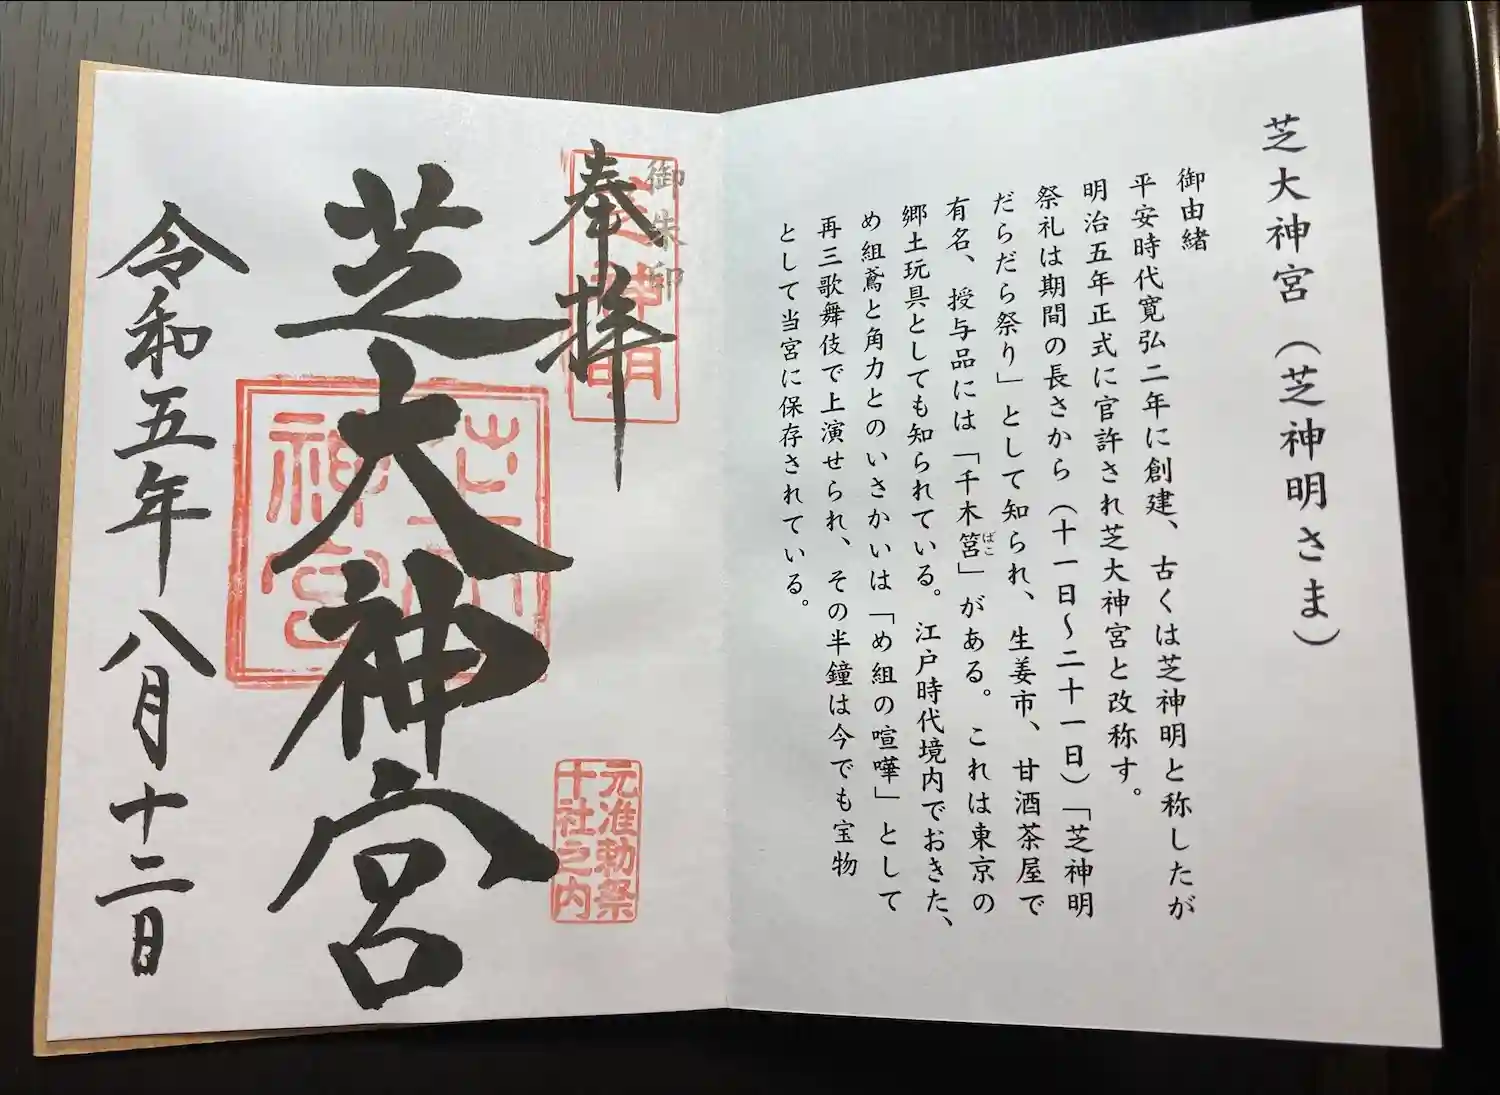 芝大神宮（芝神明さま）
御由緒
平安時代寛弘二年に創建、古くは芝神明と称したが
明治五年正式に官許され芝大神宮と改称す。
祭礼は期間の長さから（十一日～二十一日）「芝神明
だらだら祭り」として知られ、生姜市、甘酒茶屋で
有名、授与品には「千木筥」がある。これは東京の
ばこ
郷土玩具としても知られている。江戸時代境内でおきた、
め組鳶と角力とのいさかいは「め組の喧嘩」として
再三歌舞伎で上演せられ、その半鐘は今でも宝物
として当宮に保存されている。
御朱印
奉拝
芝神明
元准勅祭
十社之内
芝大神宮
芝大
神宮
令和五年八月十二日